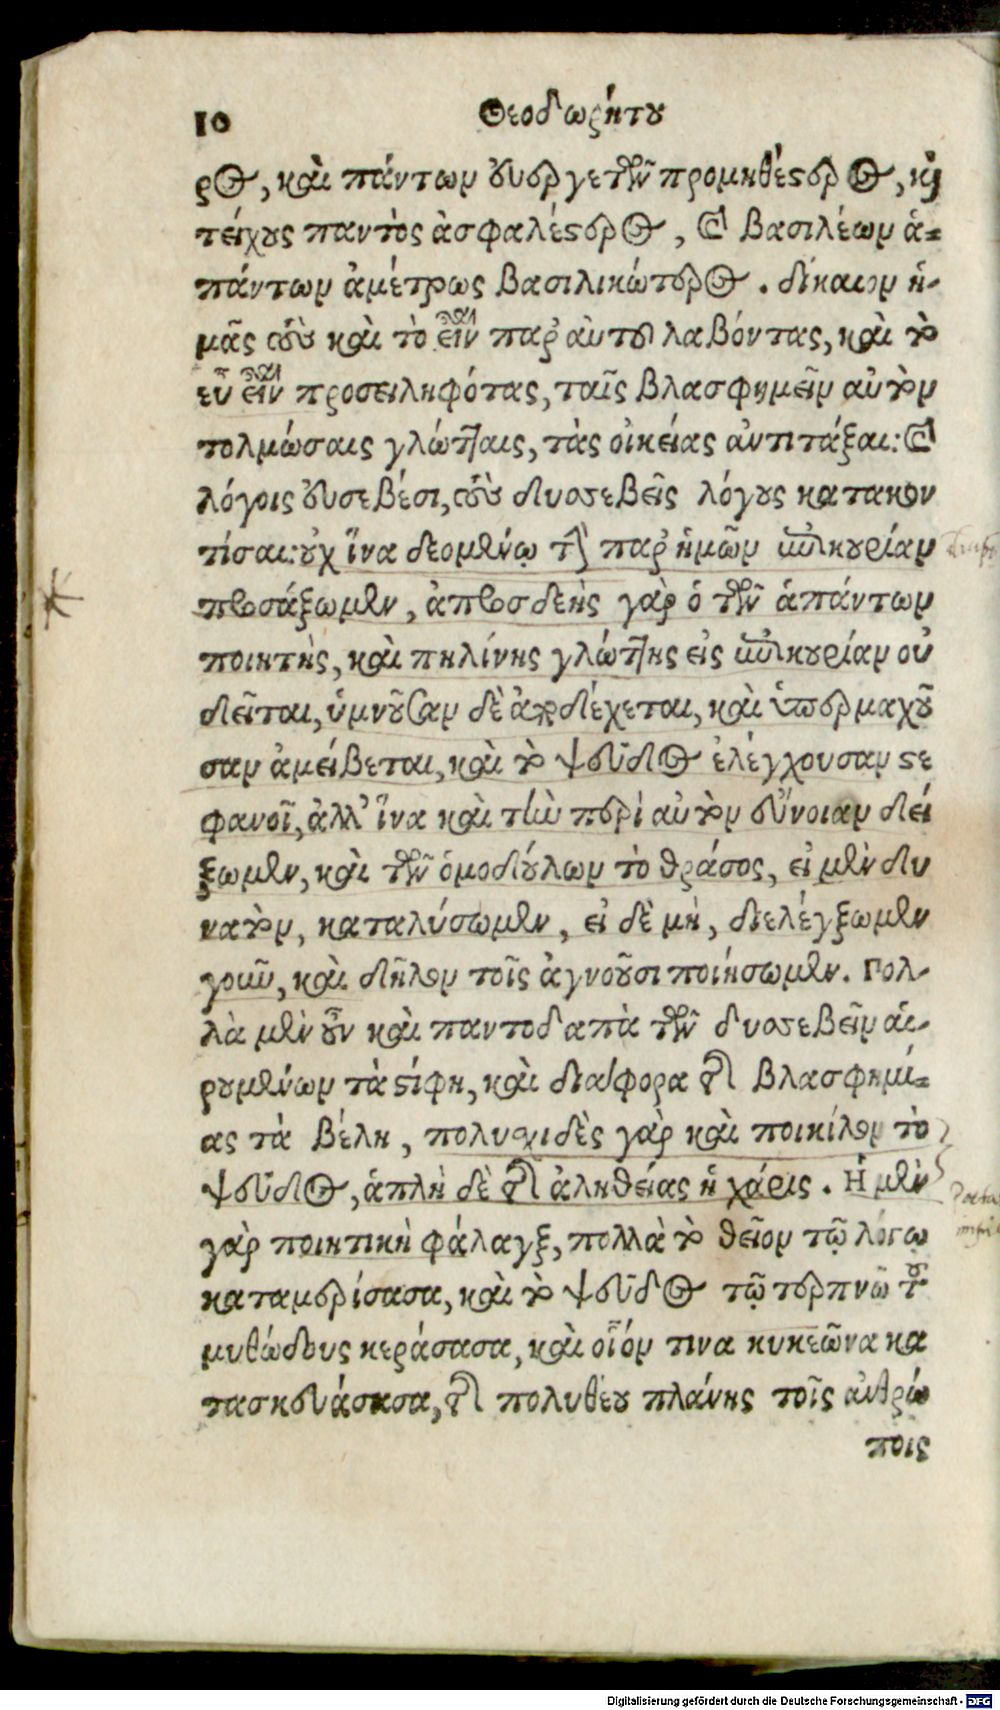 10 Θεοδωρήτου
ρος, καὶ πάντων εὐεργετῶν προμηθέστερος, καὶ
τείχους παντὸς ἀσφαλέστερος, καὶ βασιλέων ἁ-
πάντων ἀμέτρως βασιλικώτερος. δίκαιον ἡ-
μᾶς τοὺς καὶ τὸ εἶναι παρ᾽ αὐτοῦ λαβόντας, καὶ τὸ
εὖ εἶναι προσειληφότας, ταῖς βλασφημεῖν αὐτὸν
τολμώσαις γλώτταις, τὰς οἰκείας ἀντιτάξαι: καὶ
λόγοις εὐσεβέσι, τοὺς δυσσεβεῖς λόγους κατακον
τίσαι: οὐχ ἵνα δεομένῳ τὴν παρ᾽ ἡμῶν ἐπικουρίαν
προσάξωμεν, ἀπροσδεὴς γὰρ ὁ τῶν ἁπάντων
ποιητὴς, καὶ πηλίνης γλώττης εἰς ἐπικουρίαν οὐ
δεῖται, ὑμνοῦσαν δὲ ἀποδέχεται, καὶ ὑπερμαχοῦ
σαν ἀμείβεται, καὶ τὸ ψεῦδος ἐλέγχουσαν στε
φανοῖ, ἀλλ᾽ ἵνα καὶ τὴν περὶ αὐτὸν εὔνοιαν δεί
ξωμεν, καὶ τῶν ὁμοδούλων τὸ θράσος, εἰ μὲν δυ
νατὸν, καταλύσωμεν, εἰ δὲ μὴ, διελέγξωμεν
γοῦν, καὶ δῆλον τοῖς ἀγνοοῦσι ποιήσωμεν. Πολ-
λὰ μὲν οὖν καὶ παντοδαπὰ τῶν δυσσεβεῖν αἱ-
ρουμένων τὰ στίφη, καὶ διάφορα τῆς βλασφημί-
ας τὰ βέλη, πολυσχιδὲς γὰρ καὶ ποικίλον τὸ
ψεῦδος, ἁπλῆ δὲ τῆς ἀληθείας ἡ χάρις. Ἡ μὲν
γὰρ ποιητικὴ φάλαγξ, πολλὰ τὸ θεῖον τῷ λόγῳ
καταμερίσασα, καὶ τὸ ψεῦδος τῷ τερπνῷ τοῦ
μυθώδους κεράσασα, καὶ οἷόν τινα κυκεῶνα κα
τασκευάσασα, τῆς πολυθέου πλάνης τοῖς ἀνθρώ
ποις
Digitalisierung gefördert durch die Deutsche Forschungsgemeinschaft - DFG